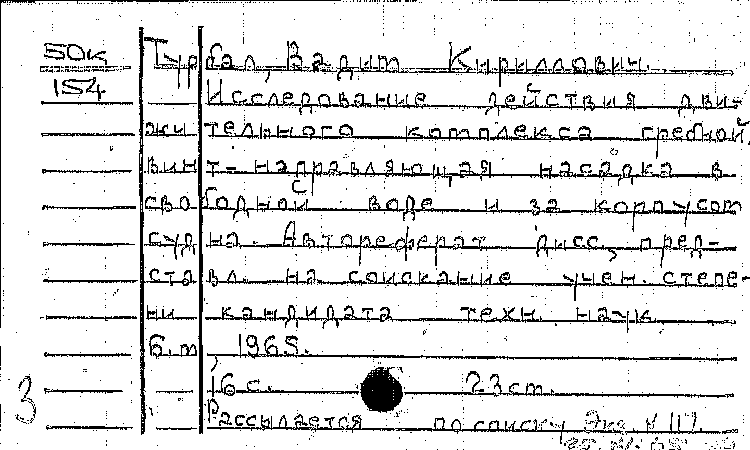 50к
154
Турбал, Вадим Кириллович.
Исследование действия дви-
жительного комплекса гребной
винт-направляющая насадка в
свободной воде и за корпусом
судна. Автореферат дисс., пред-
ставл. на соискание учен. степе-
ни кандидата техн. наук
Б.м., 1965.
16 с. 23 см.
Рассылается по списку Экз. № 117.
3